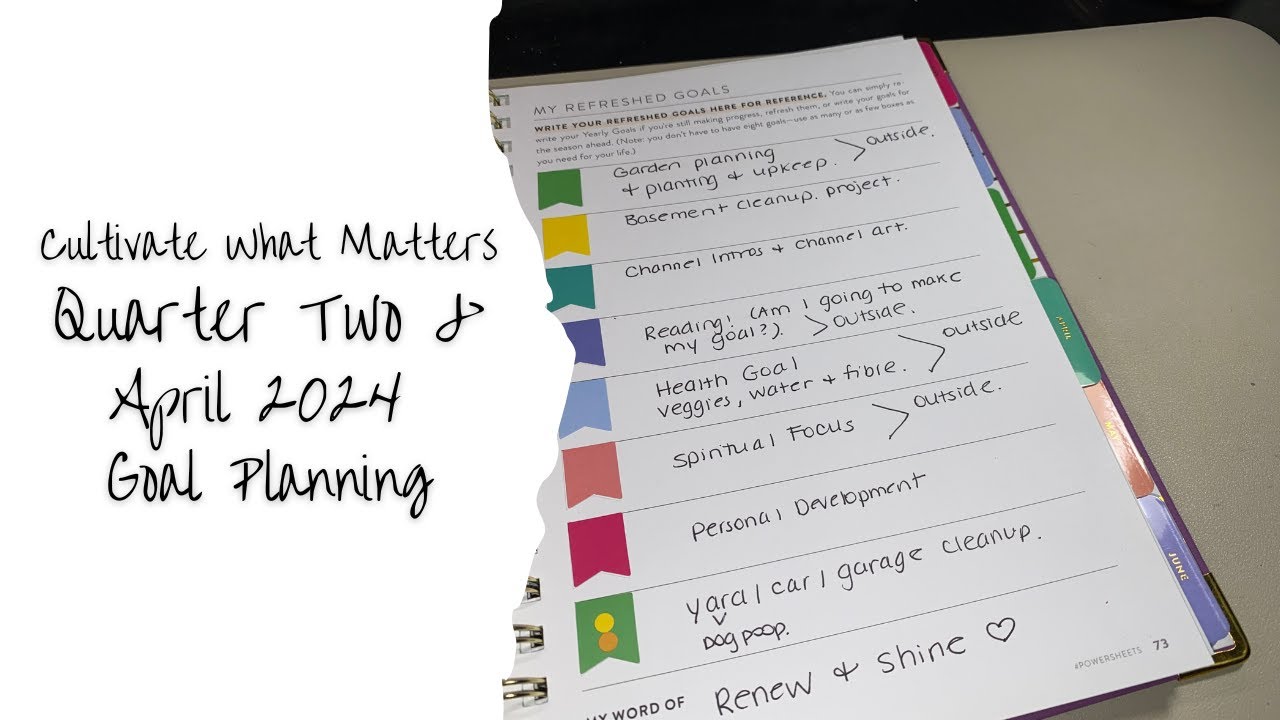 Cultivate What Matters
Quarter Two &
April 2024
Goal Planning
MY REFRESHED GOALS
WRITE YOUR REFRESHED GOALS HERE FOR REFERENCE. You can simply re-
write your Yearly Goals if you're still making progress, refresh them, or write your goals for
the season ahead. (Note: you don't have to have eight goals—use as many or as few boxes as
you need for your life.)
Garden planning
& planting & upkeep. > outside.
Basement cleanup project.
Channel Intros & Channel art.
Reading! (Am I going to make
my goal?). > outside.
Health Goal
veggies, water & fibre. > outside
Spiritual Focus > outside.
Personal Development
Yard / car / garage cleanup.
Dog poop.
MY WORD OF
Renew & Shine ♡
#POWERSHEETS 73
APRIL
MAY
JUNE